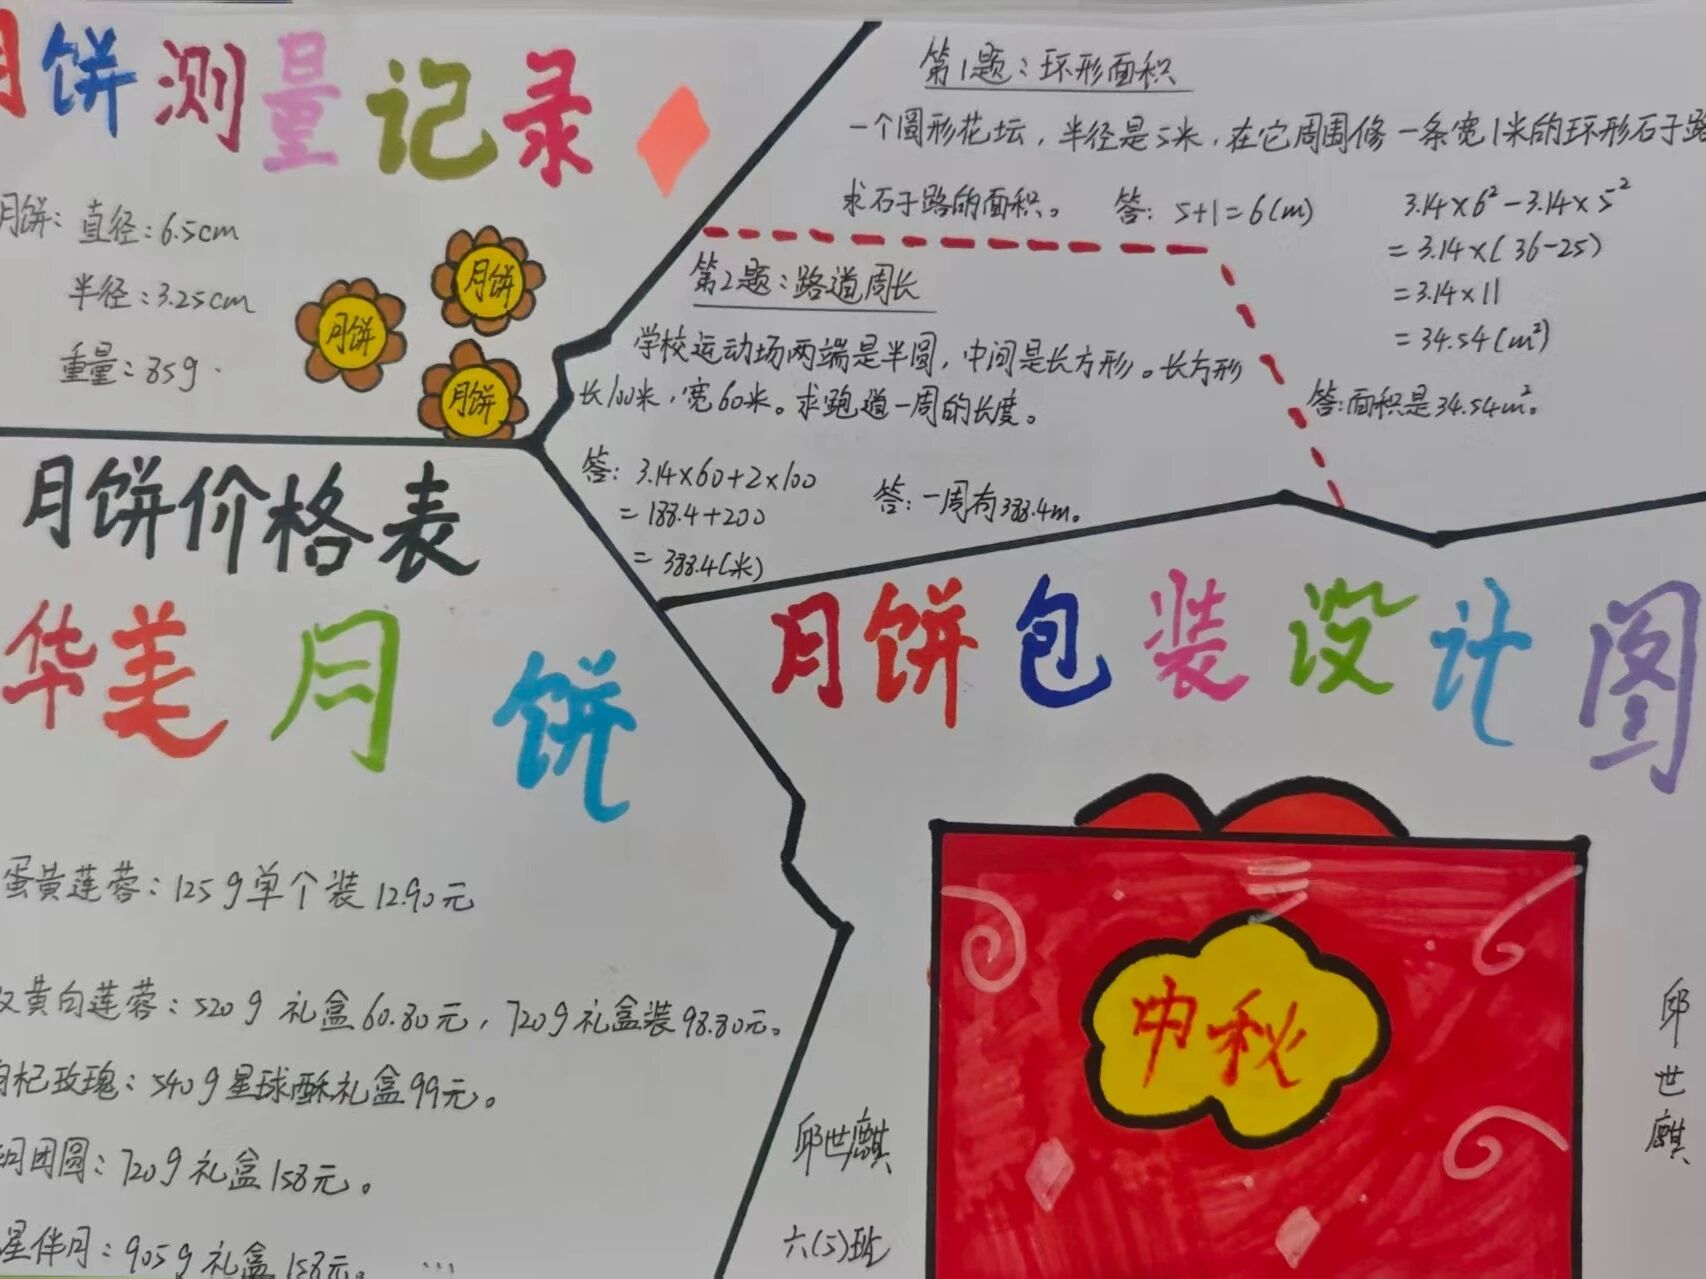 月饼测量记录
月饼：直径：6.5cm
半径：3.25cm
重量：85g.
月饼
月饼
月饼
第1题：环形面积
一个圆形花坛，半径是5米，在它周围修一条宽1米的环形石子路
求石子路的面积。 答：5+1=6(m)
3.14×6²-3.14×5²
=3.14×(36-25)
=3.14×11
=34.54(m²)
答：面积是34.54m²。
第2题：路道周长
学校运动场两端是半圆，中间是长方形。长方形
长100米，宽60米。求跑道一周的长度。
答：3.14×60+2×100
=188.4+200
=388.4(米)
答：一周有388.4m。
月饼价格表
华美月饼
蛋黄莲蓉：125g单个装12.90元
双黄白莲蓉：520g礼盒60.80元，720g礼盒装98.80元。
枸杞玫瑰：540g星球酥礼盒99元。
明团圆：720g礼盒158元。
星伴月：905g礼盒158元。...
月饼包装设计图
中秋
邱世麒
六(5)班
邱世麒